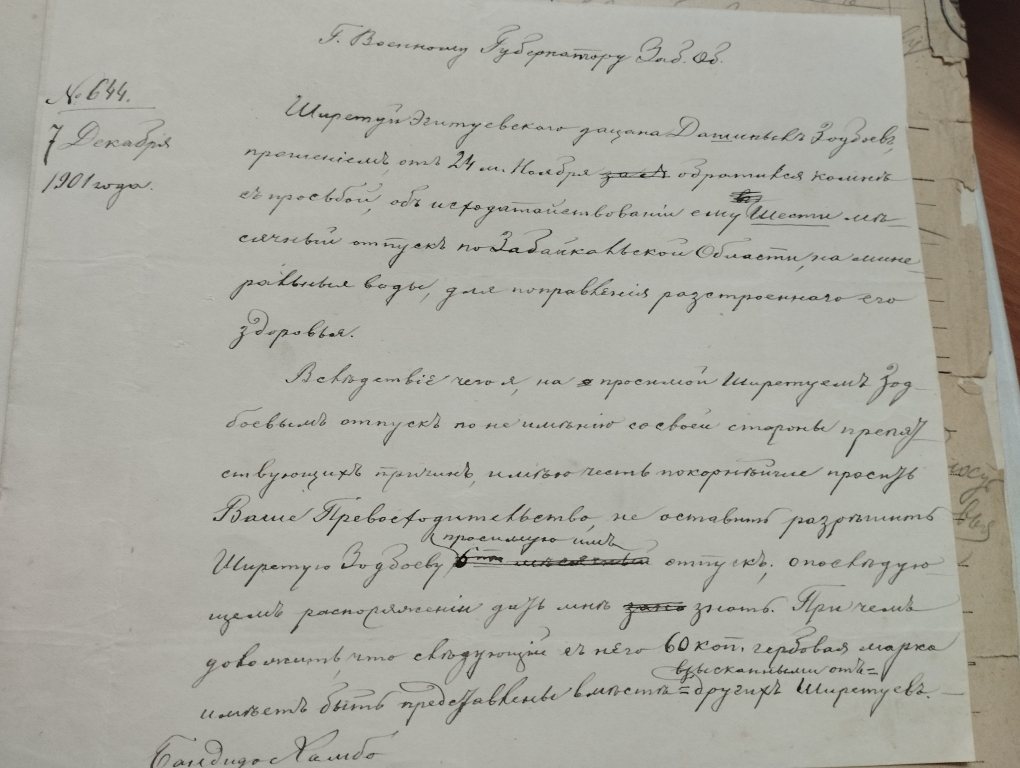 Г. Военному Губернатору Заб. Об.
№ 644.
7 Декабря
1901 года.
Ширетуй Эгитуевского дацана Дашиныъ Зодбоевъ,
прошеніемъ, отъ 24 м. Ноября обратился ко мнѣ
съ просьбой, объ исходатайствованіи ему Шести мѣ-
сячный отпускъ по Забайкальской Области, на мине
ральныя воды, для поправленія разстроеннаго его
здоровья.
Вслѣдствіе чего я, на просимой Ширетуемъ Зод-
боевымъ отпускъ по не имѣнію со своей стороны препят
ствующихъ причинъ, имѣю честь покорнѣйше просить
Ваше Превосходительство, не оставить разрѣшить
просимую имъ
Ширетую Зодбоеву 6ти мѣсячный отпускъ, о послѣдую-
щемъ распоряженіи дать мнѣ знать. При чемъ
доложить, что слѣдующій съ него 60 коп. гербовая марка
взысканными отъ=
имѣетъ быть представлены вмѣстѣ = другихъ Ширетуевъ.
Бандидо Хамбо